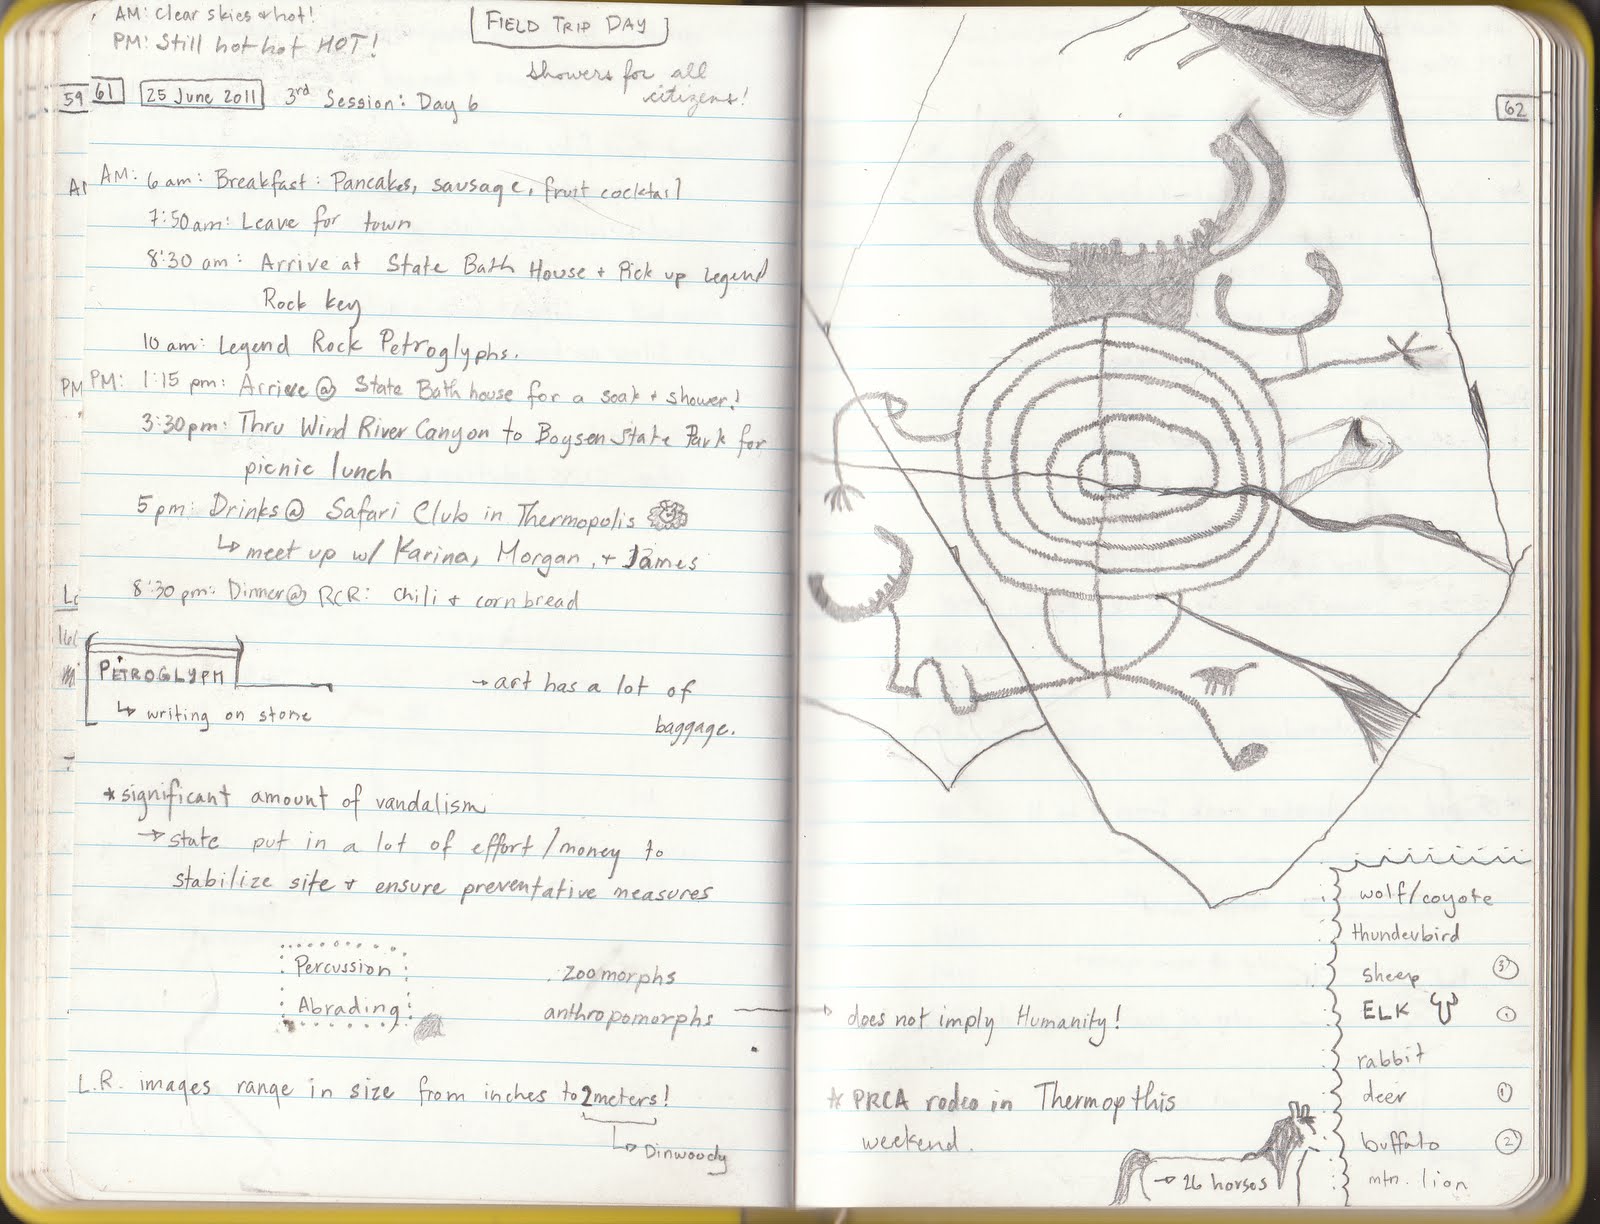 AM: Clear skies + hot!
PM: Still hot hot HOT!
FIELD TRIP DAY
showers for all
citizens!
59
61
25 June 2011
3rd Session: Day 6
AM: 6 am: Breakfast: Pancakes, sausage, fruit cocktail
7:50am: Leave for town
8:30 am: Arrive at State Bath House + Pick up Legend
Rock key
10 am: Legend Rock Petroglyphs.
PM
PM: 1:15 pm: Arrive @ State Bath house for a soak + shower!
3:30pm: Thru Wind River Canyon to Boysen State Park for
picnic lunch
5 pm: Drinks @ Safari Club in Thermopolis
↳ meet up w/ Karina, Morgan, + James
8:30 pm: Dinner @ RCR: Chili + corn bread
PETROGLYPH
↳ writing on stone
→ art has a lot of
baggage.
* significant amount of vandalism
→ state put in a lot of effort/money to
stabilize site + ensure preventative measures
Percussion
Abrading
zoomorphs
anthropomorphs
L.R. images range in size from inches to 2 meters!
↳ Dinwoody
62
→ does not imply Humanity!
* PRCA rodeo in Thermop this
weekend.
→ 26 horses
wolf/coyote
thunderbird
sheep 3
ELK 1
rabbit
deer 1
buffalo 2
mtn. lion